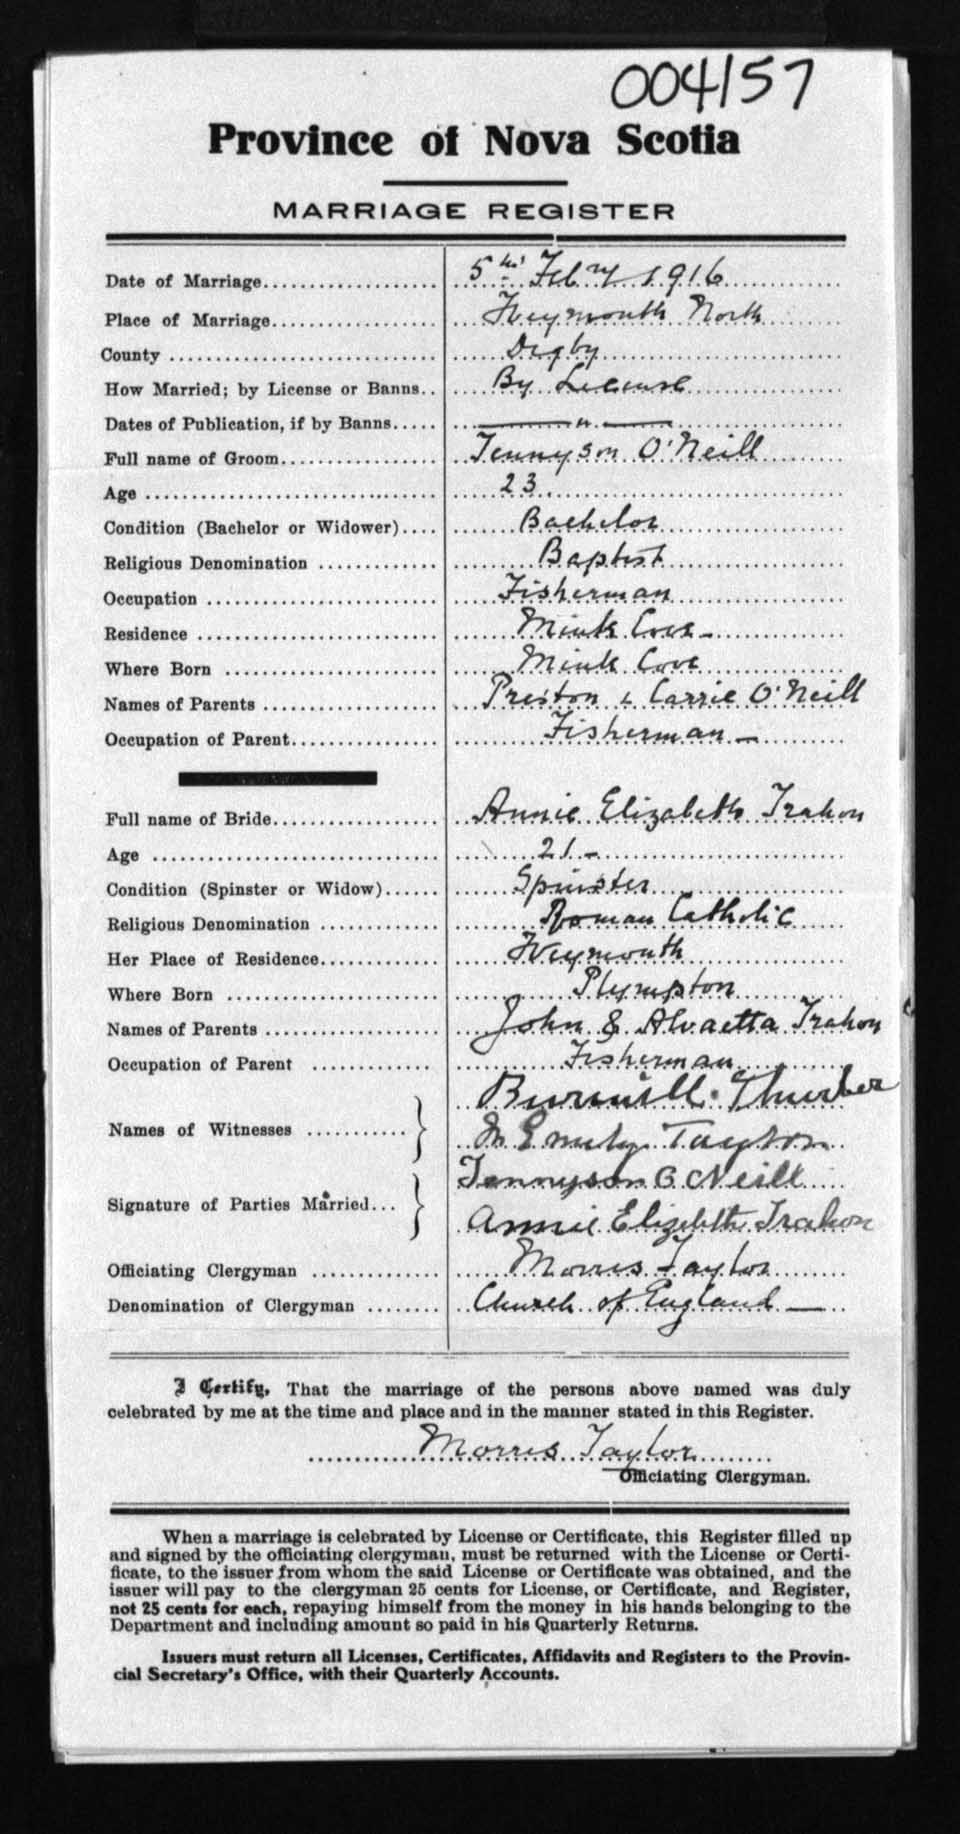 004157
Province of Nova Scotia
MARRIAGE REGISTER
Date of Marriage 5th Feby 1916
Place of Marriage Weymouth North
County Digby
How Married; by License or Banns By License
Dates of Publication, if by Banns — " —
Full name of Groom Tennyson O'Neill
Age 23
Condition (Bachelor or Widower) Bachelor
Religious Denomination Baptist
Occupation Fisherman
Residence Mink Cove –
Where Born Mink Cove
Names of Parents Preston & Carrie O'Neill
Occupation of Parent Fisherman –
Full name of Bride Annie Elizabeth Trahon
Age 21 –
Condition (Spinster or Widow) Spinster
Religious Denomination Roman Catholic
Her Place of Residence Weymouth
Where Born Plympton
Names of Parents John & Alvaetta Trahon
Occupation of Parent Fisherman
Names of Witnesses Thurber
Emily Taylor
Signature of Parties Married Tennyson O Neill
Annie Elizebeth Trahon
Officiating Clergyman Morris Taylor
Denomination of Clergyman Church of England —
I Certify, That the marriage of the persons above named was duly
celebrated by me at the time and place and in the manner stated in this Register.
Morris Taylor
Officiating Clergyman.
When a marriage is celebrated by License or Certificate, this Register filled up
and signed by the officiating clergyman, must be returned with the License or Certi-
ficate, to the issuer from whom the said License or Certificate was obtained, and the
issuer will pay to the clergyman 25 cents for License, or Certificate, and Register,
not 25 cents for each, repaying himself from the money in his hands belonging to the
Department and including amount so paid in his Quarterly Returns.
Issuers must return all Licenses, Certificates, Affidavits and Registers to the Provin-
cial Secretary's Office, with their Quarterly Accounts.